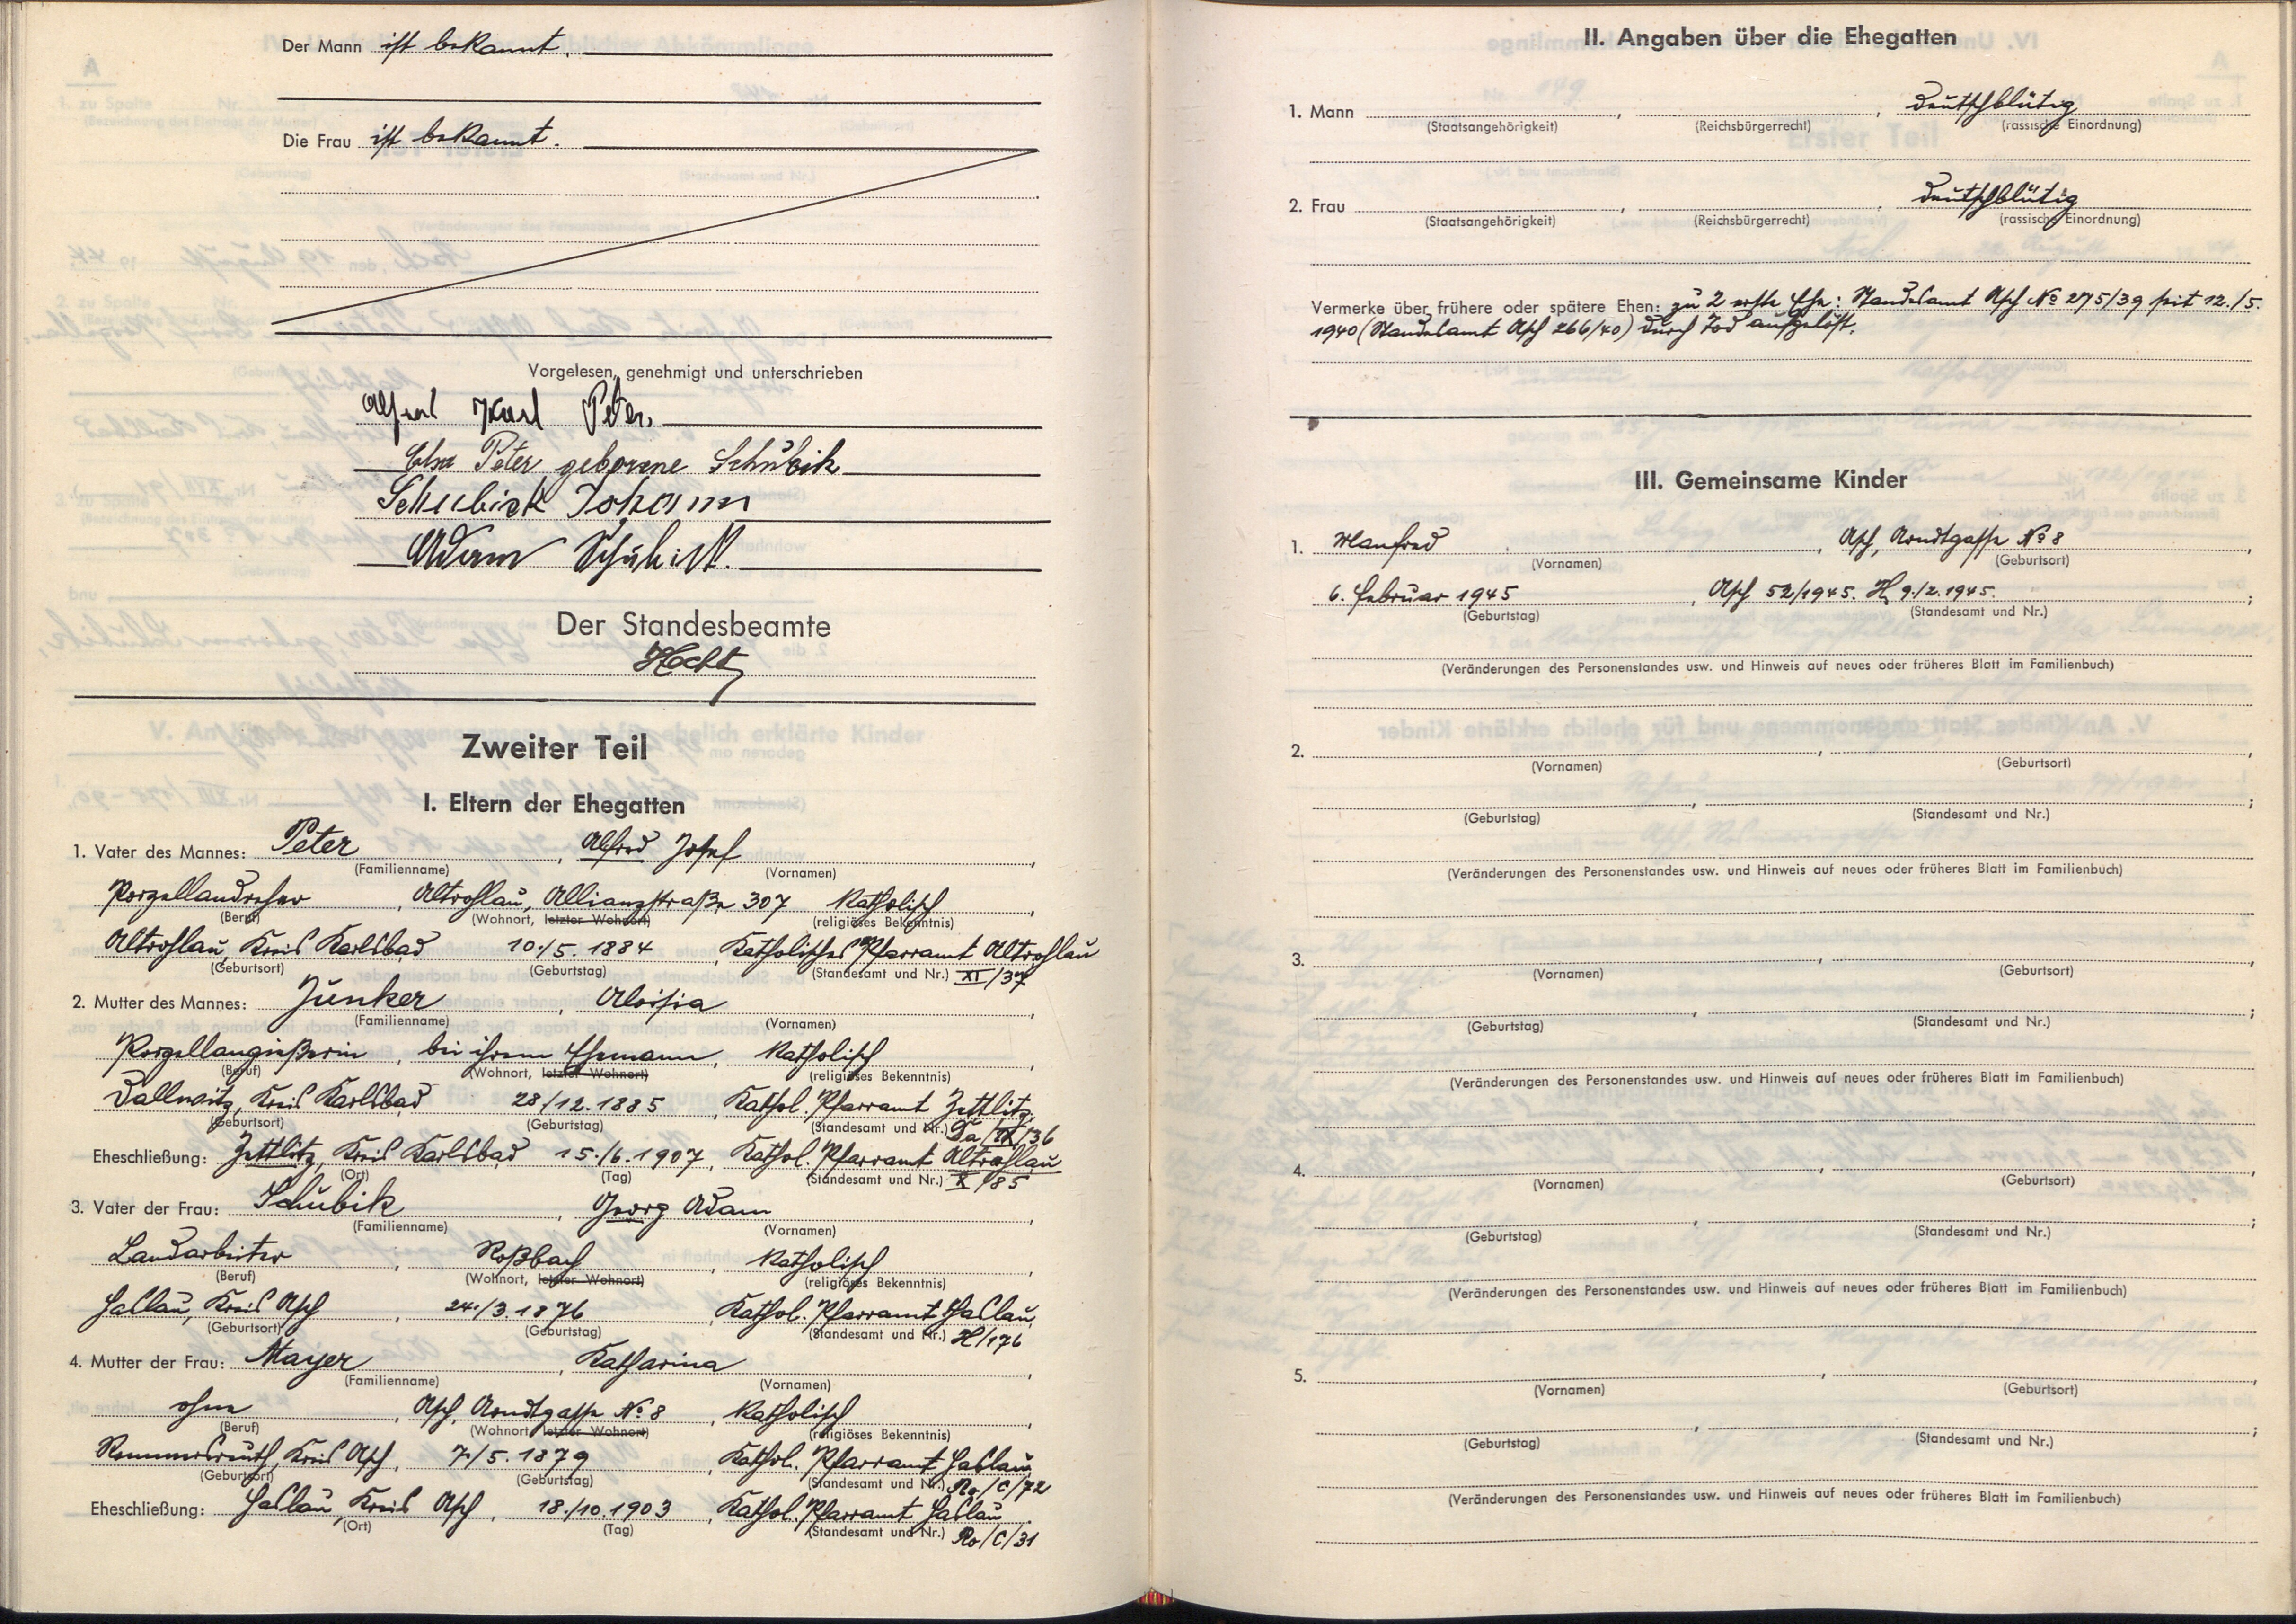 Der Mann ist bekannt.
Die Frau ist bekannt.
Vorgelesen, genehmigt und unterschrieben
Alfred Karl Peter.
Elsa Peter geborene Schubik
Schubick Johann
Adam Schubik.
Der Standesbeamte
Hecht
Zweiter Teil
I. Eltern der Ehegatten
1. Vater des Mannes: Peter, Alfred Josef,
(Familienname) (Vornamen)
Porzellandreher, Altrohlau, Allianzstraße 307 katholisch,
(Beruf) (Wohnort, letzter Wohnort) (religiöses Bekenntnis)
Altrohlau, Kreis Karlsbad 10./5. 1884, Katholisches Pfarramt Altrohlau
(Geburtsort) (Geburtstag) (Standesamt und Nr.) XI/37
2. Mutter des Mannes: Junker, Aloisia,
(Familienname) (Vornamen)
Porzellangießerin, bei ihrem Ehemann, katholisch,
(Beruf) (Wohnort, letzter Wohnort) (religiöses Bekenntnis)
Dallwitz, Kreis Karlsbad 28/12. 1885, Kathol. Pfarramt Zettlitz,
(Geburtsort) (Geburtstag) (Standesamt und Nr.) Da/IX/36
Eheschließung: Zettlitz, Kreis Karlsbad 15./6. 1907, Kathol. Pfarramt Altrohlau
(Ort) (Tag) (Standesamt und Nr.) X/85
3. Vater der Frau: Schubik, Georg Adam,
(Familienname) (Vornamen)
Landarbeiter, Roßbach, katholisch,
(Beruf) (Wohnort, letzter Wohnort) (religiöses Bekenntnis)
Haslau, Kreis Asch, 24./3. 1876, Kathol. Pfarramt Haslau,
(Geburtsort) (Geburtstag) (Standesamt und Nr.) H/176
4. Mutter der Frau: Mayer, Katharina,
(Familienname) (Vornamen)
ohne, Asch, Arndtgasse No 8, katholisch,
(Beruf) (Wohnort, letzter Wohnort) (religiöses Bekenntnis)
Rommersreuth, Kreis Asch, 7./5. 1879, Kathol. Pfarramt Haslau
(Geburtsort) (Geburtstag) (Standesamt und Nr.) Ro/C/72
Eheschließung: Haslau, Kreis Asch, 18./10. 1903, Kathol. Pfarramt Haslau
(Ort) (Tag) (Standesamt und Nr.) Ro/C/31
II. Angaben über die Ehegatten
1. Mann , , deutschblütig
(Staatsangehörigkeit) (Reichsbürgerrecht) (rassische Einordnung)
2. Frau , , deutschblütig
(Staatsangehörigkeit) (Reichsbürgerrecht) (rassische Einordnung)
Vermerke über frühere oder spätere Ehen: zu 2 erste Ehe: Standesamt Asch No 275/39 seit 12./5.
1940 (Standesamt Asch 266/40) durch Tod aufgelöst.
III. Gemeinsame Kinder
1. Manfred, Asch, Arndtgasse No 8,
(Vornamen) (Geburtsort)
6. Februar 1945, Asch 52/1945. H 9./2. 1945.;
(Geburtstag) (Standesamt und Nr.)
(Veränderungen des Personenstandes usw. und Hinweis auf neues oder früheres Blatt im Familienbuch)
2. , ,
(Vornamen) (Geburtsort)
, ;
(Geburtstag) (Standesamt und Nr.)
(Veränderungen des Personenstandes usw. und Hinweis auf neues oder früheres Blatt im Familienbuch)
3. , ,
(Vornamen) (Geburtsort)
, ;
(Geburtstag) (Standesamt und Nr.)
(Veränderungen des Personenstandes usw. und Hinweis auf neues oder früheres Blatt im Familienbuch)
4. , ,
(Vornamen) (Geburtsort)
, ;
(Geburtstag) (Standesamt und Nr.)
(Veränderungen des Personenstandes usw. und Hinweis auf neues oder früheres Blatt im Familienbuch)
5. , ,
(Vornamen) (Geburtsort)
, ;
(Geburtstag) (Standesamt und Nr.)
(Veränderungen des Personenstandes usw. und Hinweis auf neues oder früheres Blatt im Familienbuch)